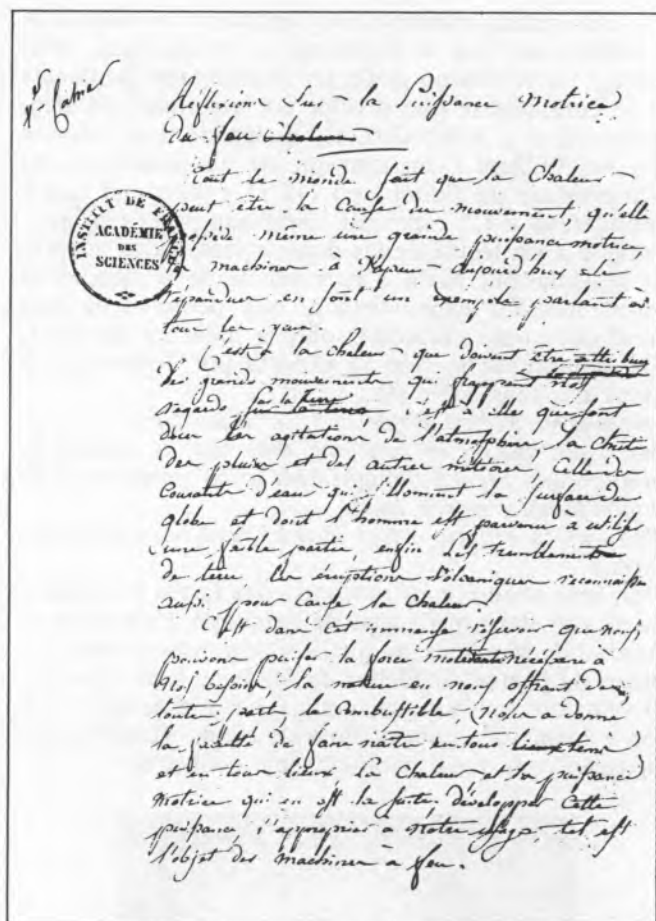 1er Cahier
Réflexions sur la Puissance Motrice
du feu chaleur
INSTITUT DE FRANCE
ACADÉMIE
DES
SCIENCES
Tout le monde sait que la Chaleur
peut être la Cause du mouvement, qu'elle
possède même une grande puissance motrice,
les machines à Vapeur aujourd'hui si
répandues en sont un exemple parlant à
tous les yeux.
C'est à la chaleur que doivent être attribués
les grands mouvements qui frappent nos
regards sur la terre sur la terre c'est à elle que sont
dues les agitations de l'atmosphère, la chute
des pluies et des autres météores, celle des
Courants d'eau qui sillonnent la surface du
globe et dont l'homme est parvenu à utiliser
une faible partie, enfin les tremblements
de terre, les éruptions Volcaniques reconnaissent
aussi pour Cause la chaleur.
C'est dans cet immense réservoir que nous
pouvons puiser la force nécessaire à
nos besoins, la nature en nous offrant de
toute part le Combustible, nous a donné
la faculté de faire naître en tous lieux tems
et en tous lieux la Chaleur et la puissance
Motrice qui en est la suite. développer Cette
puissance, l'approprier à notre usage, tel est
l'objet des machines à feu.